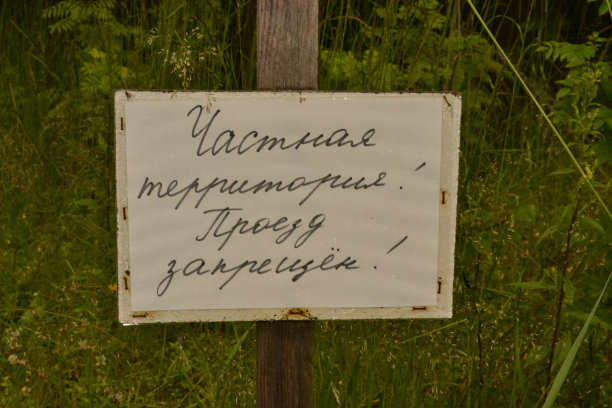 Частная
территория!
Проезд
запрещён!